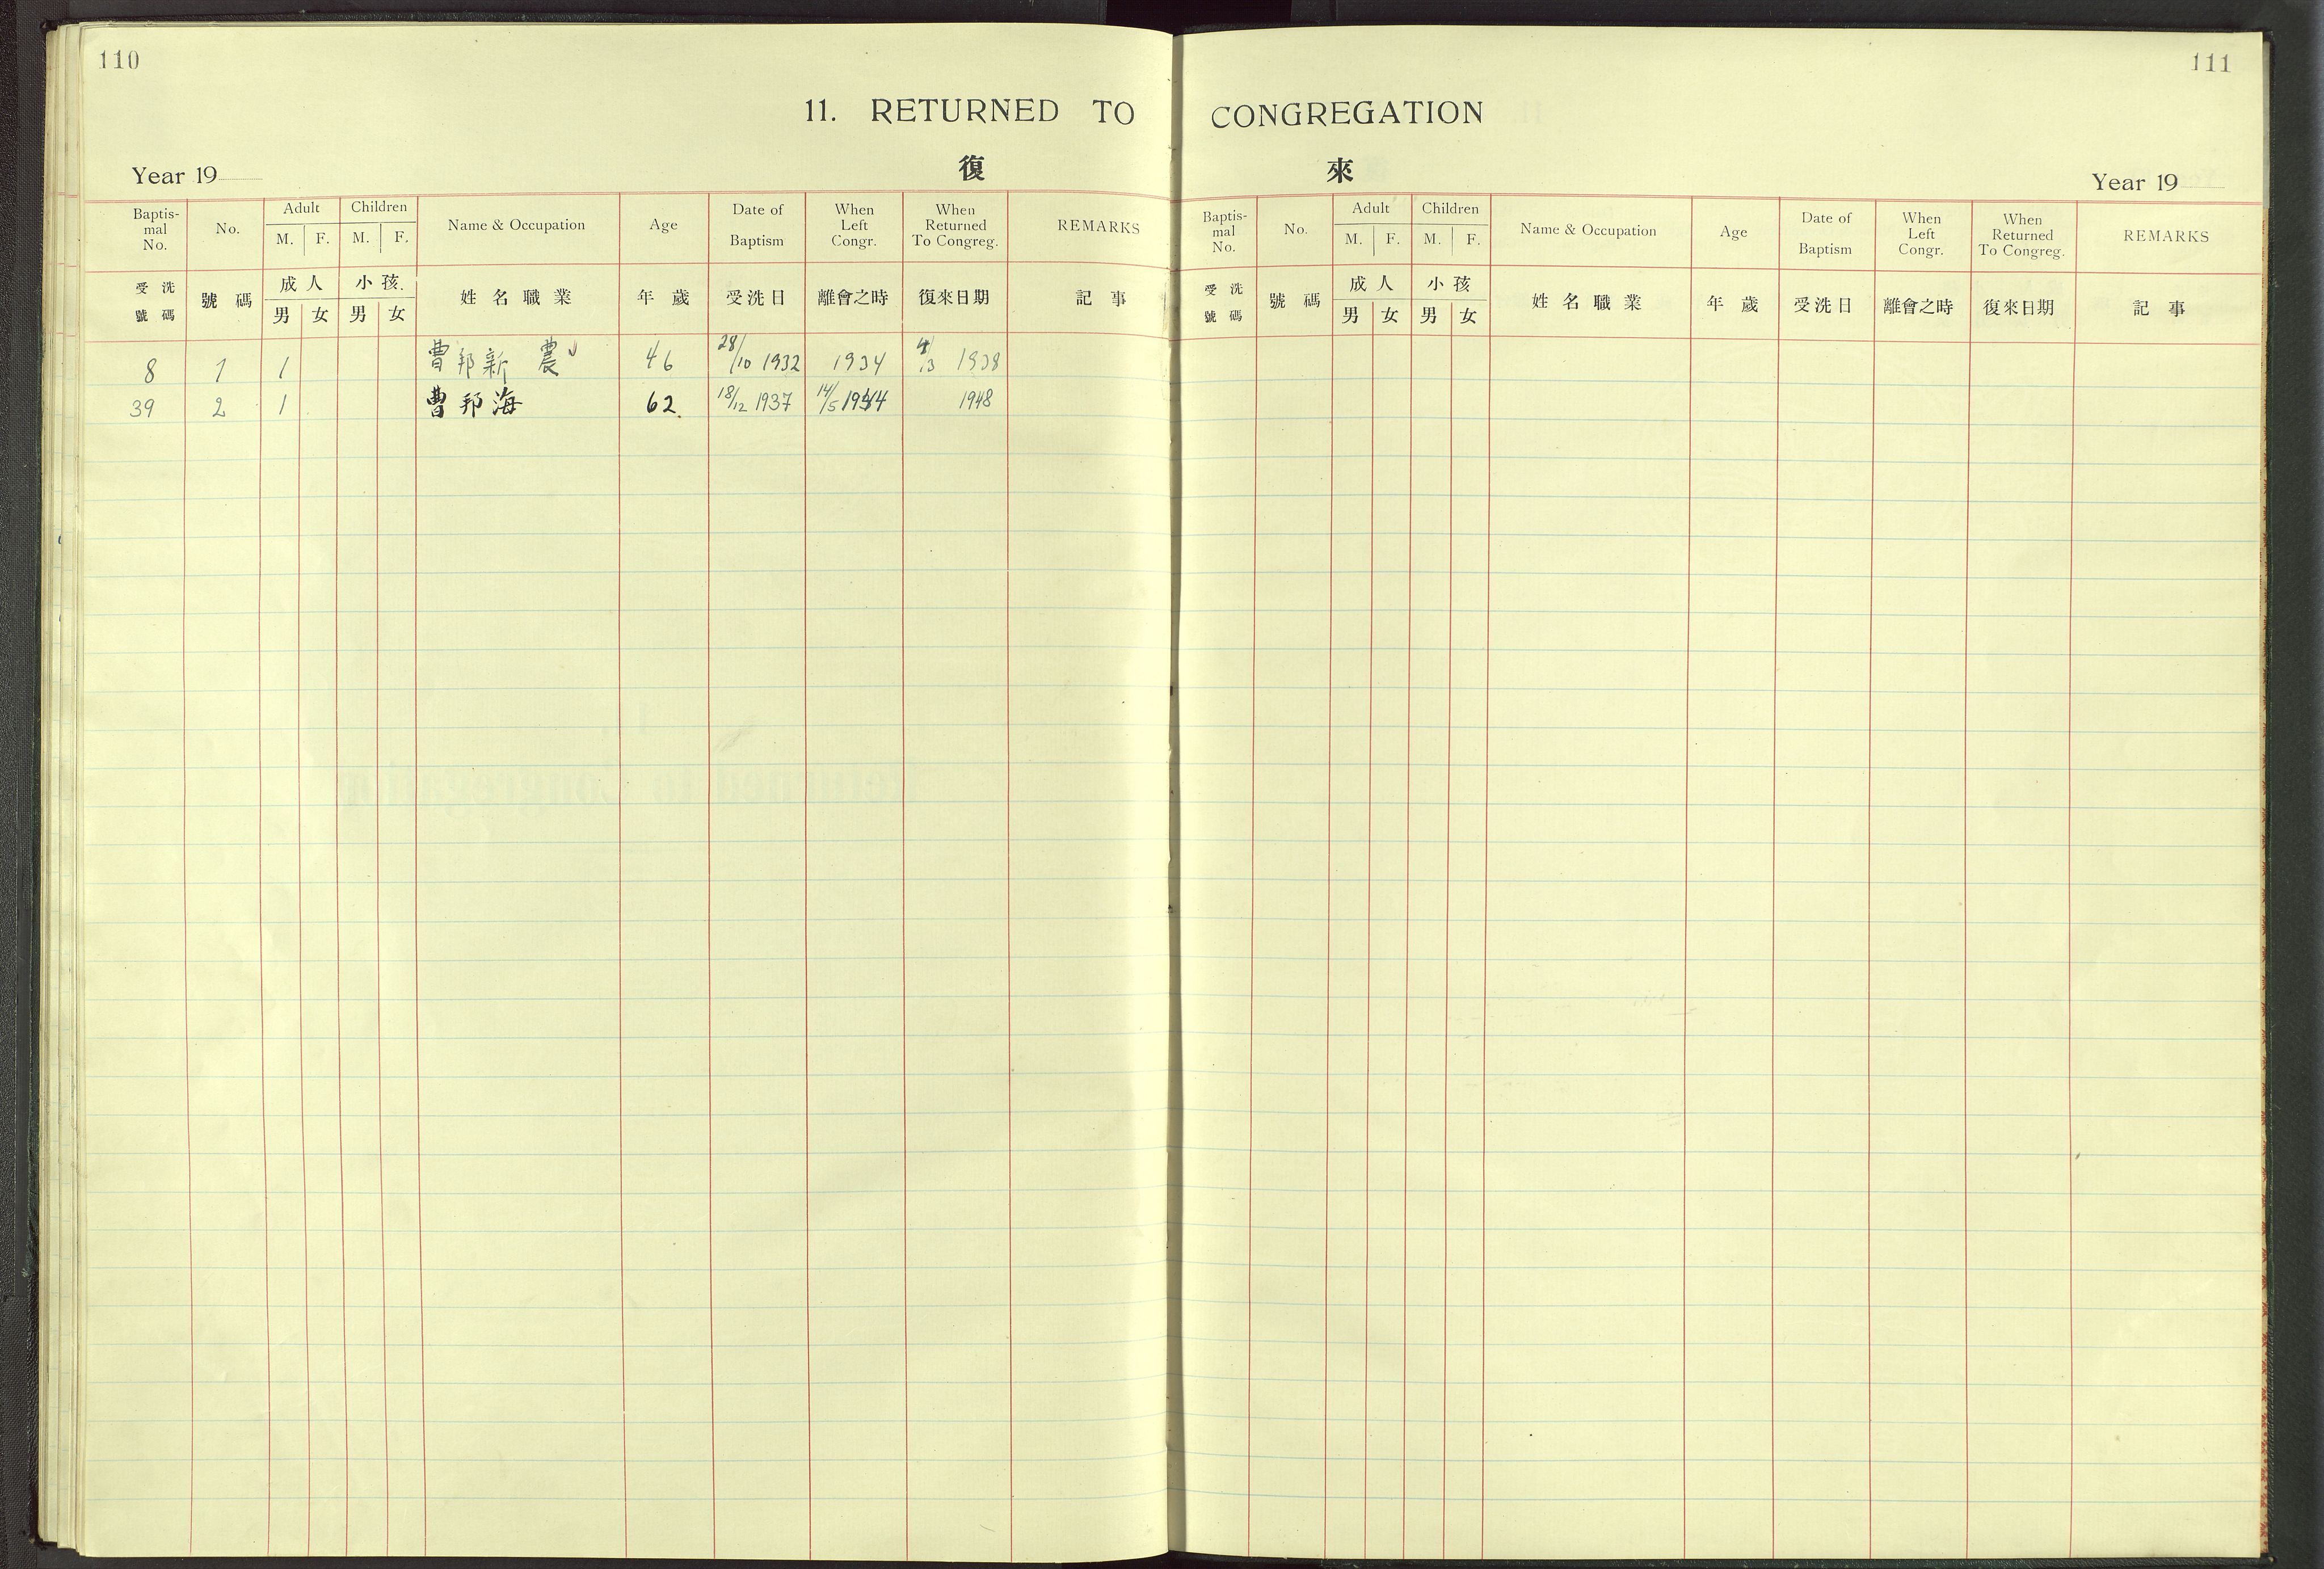 110
111
11. RETURNED TO CONGREGATION
復 來
Year 19
Year 19
Baptis-mal No. No. Adult M. F. Children M. F. Name & Occupation Age Date of Baptism When Left Congr. When Returned To Congreg. REMARKS
受洗號碼 號碼 成人 男 女 小孩 男 女 姓名職業 年歲 受洗日 離會之時 復來日期 記事
8 1 1 曹邦新 農 46 28/10 1932 1934 4/3 1938
39 2 1 曹邦海 62. 18/12 1937 14/5 1944 1948
Baptis-mal No. No. Adult M. F. Children M. F. Name & Occupation Age Date of Baptism When Left Congr. When Returned To Congreg. REMARKS
受洗號碼 號碼 成人 男 女 小孩 男 女 姓名職業 年歲 受洗日 離會之時 復來日期 記事